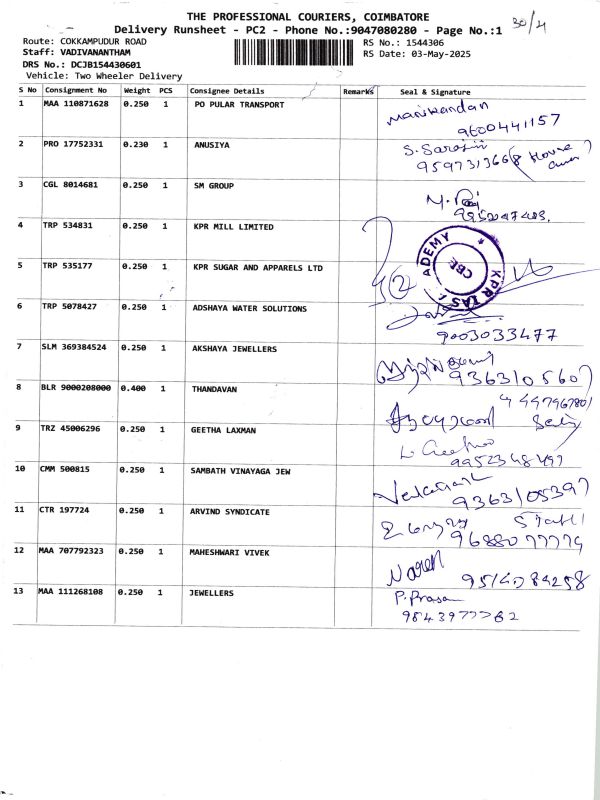 THE PROFESSIONAL COURIERS, COIMBATORE
30/4
Delivery Runsheet - PC2 - Phone No.:9047080280 - Page No.:1
Route: COKKAMPUDUR ROAD
RS No.: 1544306
Staff: VADIVANANTHAM
RS Date: 03-May-2025
DRS No.: DCJB154430601
Vehicle: Two Wheeler Delivery
S No Consignment No Weight PCS Consignee Details Remarks Seal & Signature
1 MAA 110871628 0.250 1 PO PULAR TRANSPORT Manikandan
9600441157
2 PRO 17752331 0.230 1 ANUSIYA S. Sarojini
House owner
3 CGL 8014681 0.250 1 SM GROUP
4 TRP 534831 0.250 1 KPR MILL LIMITED
5 TRP 535177 0.250 1 KPR SUGAR AND APPARELS LTD 2 KPR IAS ADEMY CBE
6 TRP 5078427 0.250 1 ADSHAYA WATER SOLUTIONS
9003033477
7 SLM 369384524 0.250 1 AKSHAYA JEWELLERS
9363105607
8 BLR 9000208000 0.400 1 THANDAVAN
9 TRZ 45006296 0.250 1 GEETHA LAXMAN L. Geetha
10 CMM 500815 0.250 1 SAMBATH VINAYAGA JEW Venkatesh
9363105397
11 CTR 197724 0.250 1 ARVIND SYNDICATE
12 MAA 707792323 0.250 1 MAHESHWARI VIVEK Naren
9514784258
13 MAA 111268108 0.250 1 JEWELLERS P. Prasan
9843977762